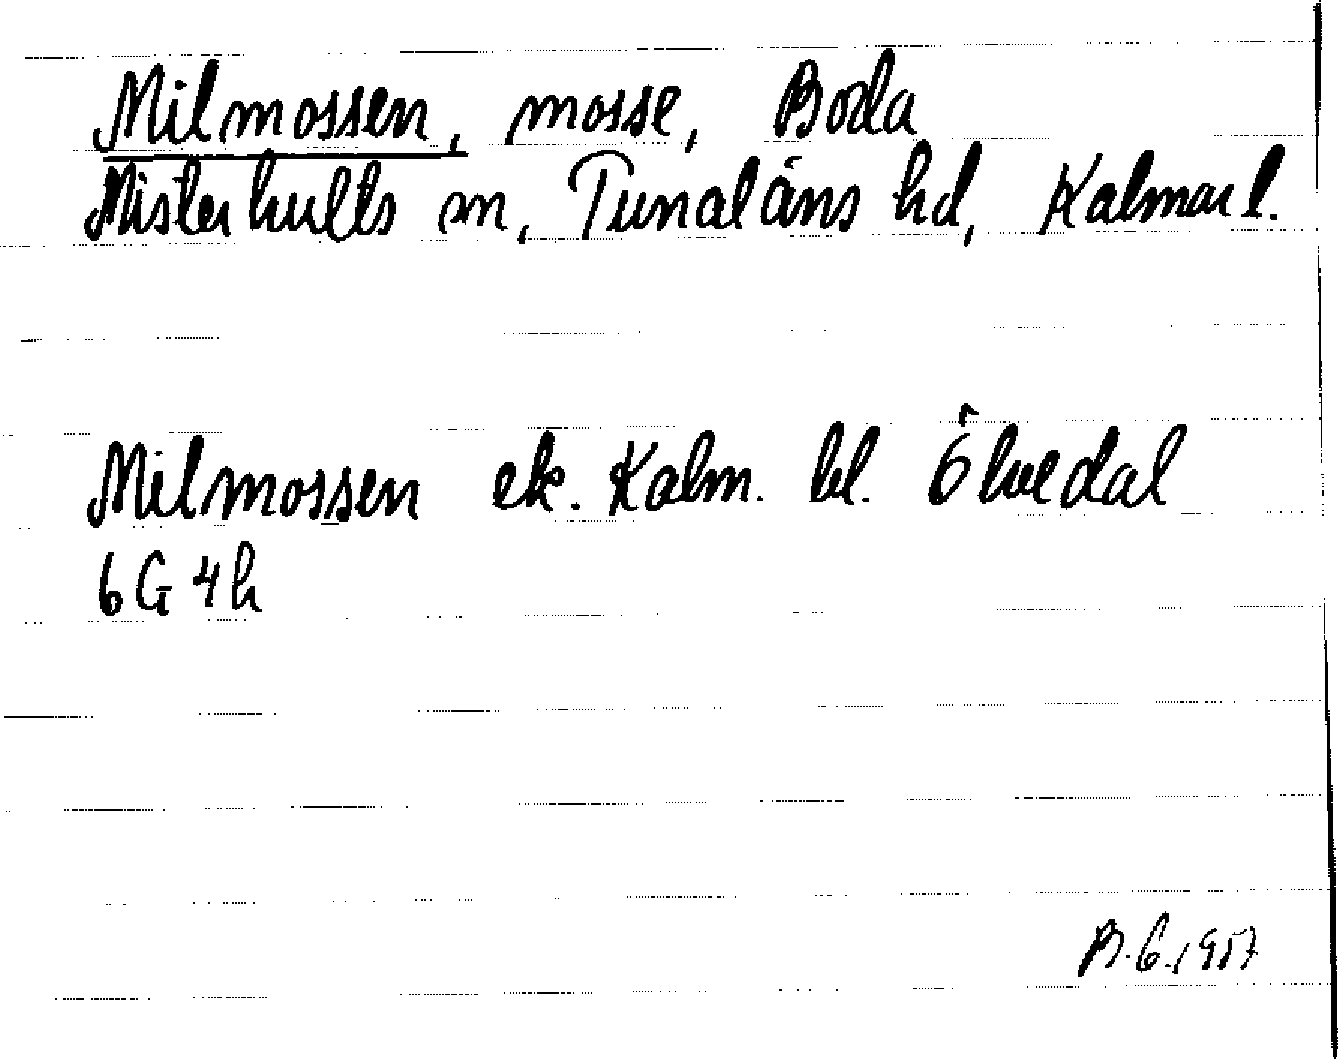 Milmossen, mosse, Boda
Misterhults sn, Tunaläns hd, Kalmar l.
Milmossen ek. Kalm. bl. Ölvedal
6G 4h
B.G. 1957